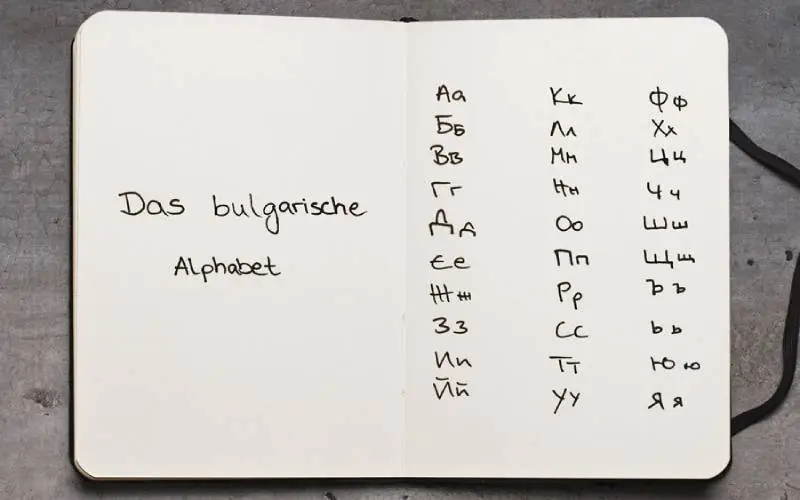 Das bulgarische
Alphabet
Аа
Бб
Вв
Гг
Дд
Ее
Жж
Зз
Ии
Йй
Кк
Лл
Мм
Нн
Оо
Пп
Рр
Сс
Тт
Уу
Фф
Хх
Цц
Чч
Шш
Щщ
Ъъ
Ьь
Юю
Яя